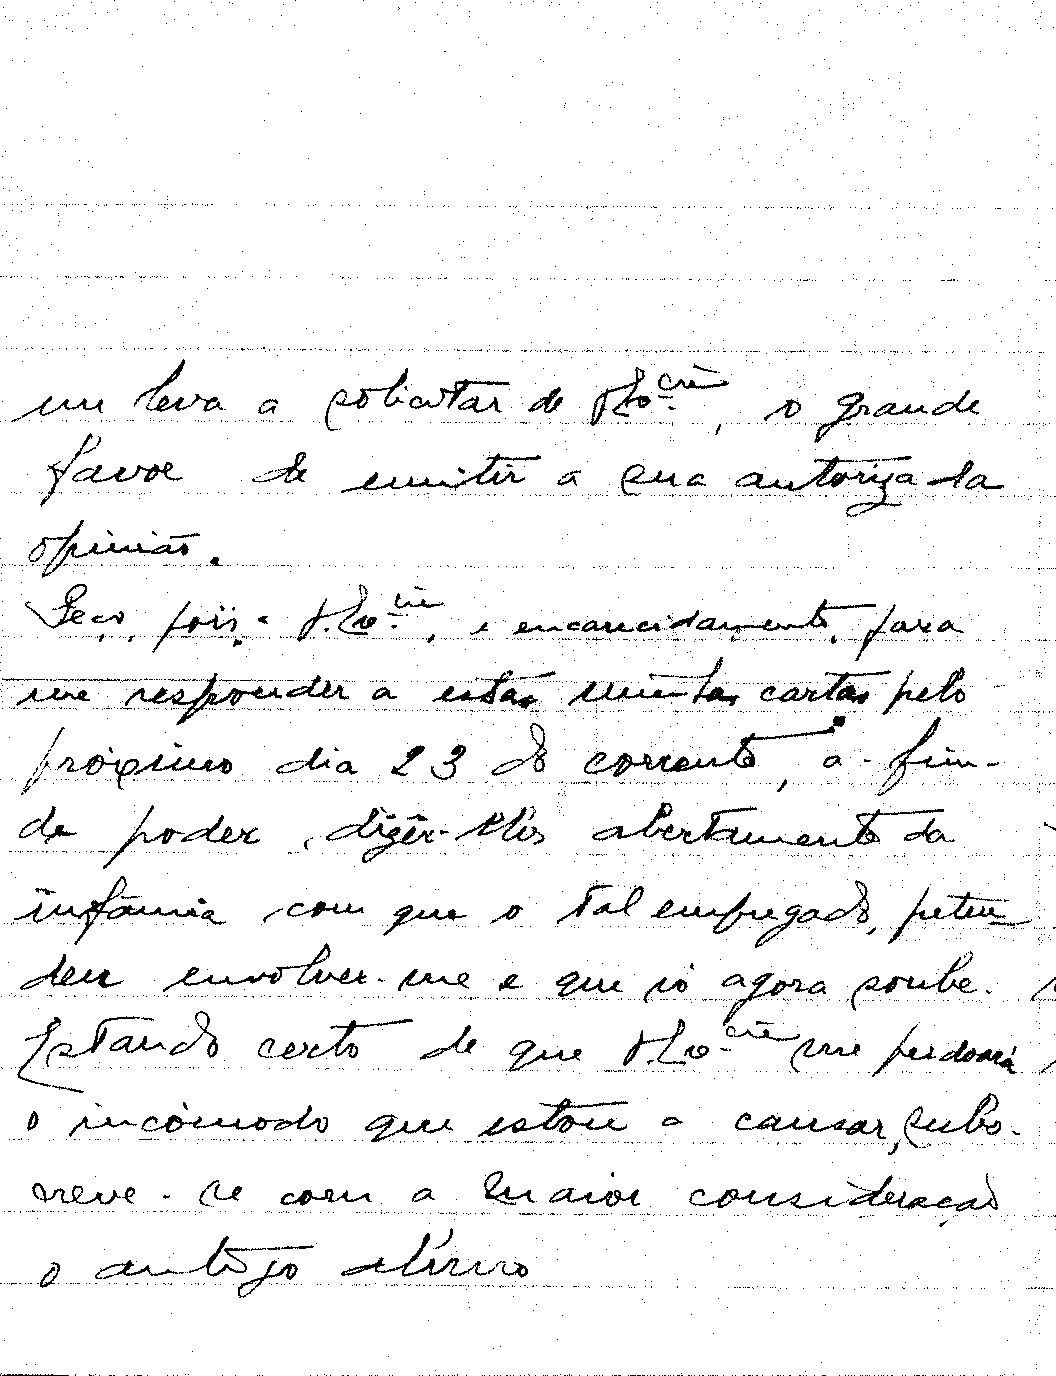 me leva a solicitar de V. Ex.cia, o grande
favor de emitir a sua autorizada
opinião.
Peço, pois, a V. Ex.cia, e encarecidamente, para
me responder a estas minhas cartas pelo
próximo dia 23 do corrente, a-fim-
de poder, abertamente da
infâmia com que o tal empregado, preten-
deu envolver-me e que só agora soube.
Estando certo de que V. Ex.cia me perdoará
o incómodo que estou a causar, subs-
creve-se com a maior consideração
o antigo aluno